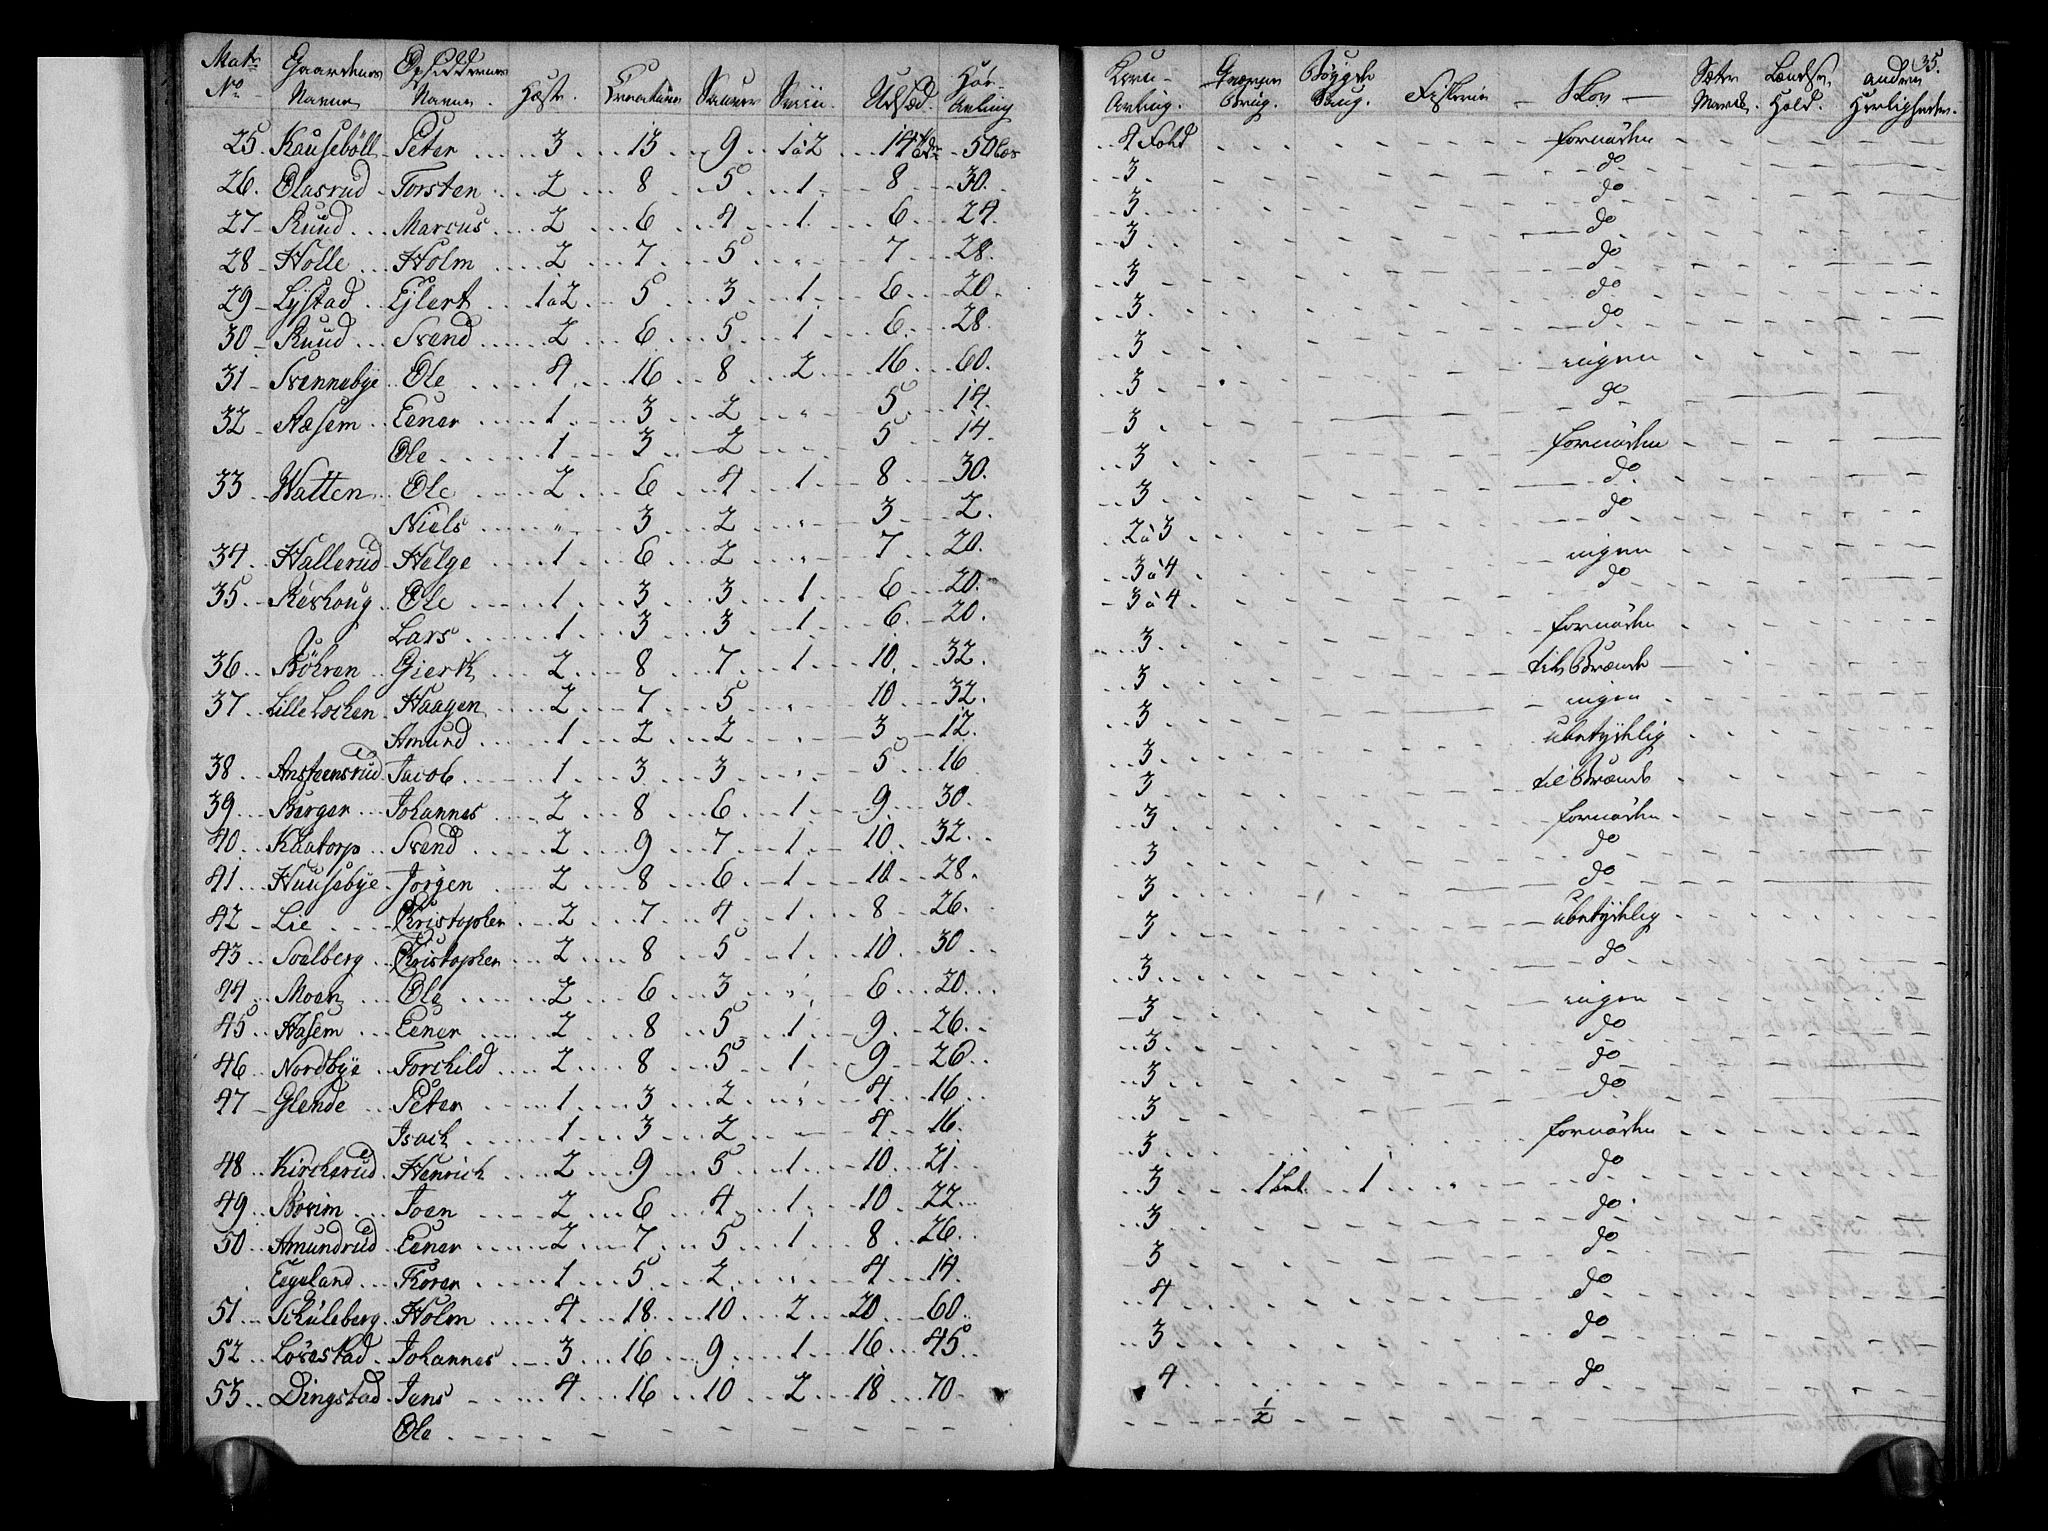 35.
Matr No Gaardenes Navne Opsiddernes Navne. Heste. Creature Sauer Sviin. Udsæd. Høe Avling Korn Avling. Qværne Brug. Bøygde Saug. Fiskerie Skov Sæter Marck. Hold. andre Herligheder.
25 Kausebøll Peter 3 13 9 1 a 2 14 50 4 Fold fornøden
26. Olasrud Torsten 2 8 5 1 8 30. 3 do
27 Ruud Marcus 2 6 4 1 6 24. 3 do
28 Holle Holm 2 7 5 " 7 28. 3 do
29 Lystad Ejlert 1 a 2 5 3 1 6 20. 3 do
30 Ruud Svend 2 6 5 1 6 28. 3 do
31 Svennebye Ole 4 16 8 2 16 60. 3 do
32 Aasem Eener 1 3 2 " 5 14. 3 ingen
Ole 1 3 2 5 14. 3 do
33 Watten Ole 2 6 4 1 8 30. 3 fornøden
Niels " 3 2 " 3 2. 3 do
34 Hallerud Helge 1 6 2 " 7 20. 2 a 3 do
35 Reshoug Ole 1 3 3 1 6 20. 3 a 4 ingen
Lars 1 3 3 1 6 20. 3 a 4 do
36 Böhren Gierth 2 8 7 1 10 32. 3 fornøden
37 Lille Lochen Haagen 2 7 5 " 10 32. 3 til Brænde
Amund 1 2 2 " 3 12. 3 ingen
38 Ansteensrud Jacob 1 3 3 " 5 16 3 ubetydelig
39 Berger Johannes 2 8 6 1 9 30. 3 til Brænde
40 Kaatorp Svend 2 9 7 1 10 32. 3 fornøden
41 Huusebye Jörgen 2 8 6 1 10 28. 3 do
42 Lie Christopher 2 7 4 1 8 26. 3 do
43 Soelberg Christopher 2 8 5 1 10 30 3 ubetydelig
44 Moen Ole 2 6 3 " 6 20. 3 do
45 Aasem Eener 2 8 5 1 9 26. 3 ingen
46 Nordbye Torchild 2 8 5 1 9 26. 3 do
47 Glende Peter 1 3 2 " 4 16. 3 do
Isach 1 3 2 4 16. 3 do
48 Kircherud Henrich 2 9 5 1 10 21. 3 fornøden
49 Börim Joen 2 6 4 1 10 22. 3 1 1 do
50 Amundrud Eener 2 7 5 1 8 26. 3 do
Eegeland Thoren 1 5 2 " 4 14. 3 do
51 Schuleberg Holm 4 18 10 2 20 60. 4 do
52 Lörestad Johannes 3 16 9 1 16 45. 3 do
53 Dingstad Jens 4 16 10 2 18 70. 4 do
Ole 1/2